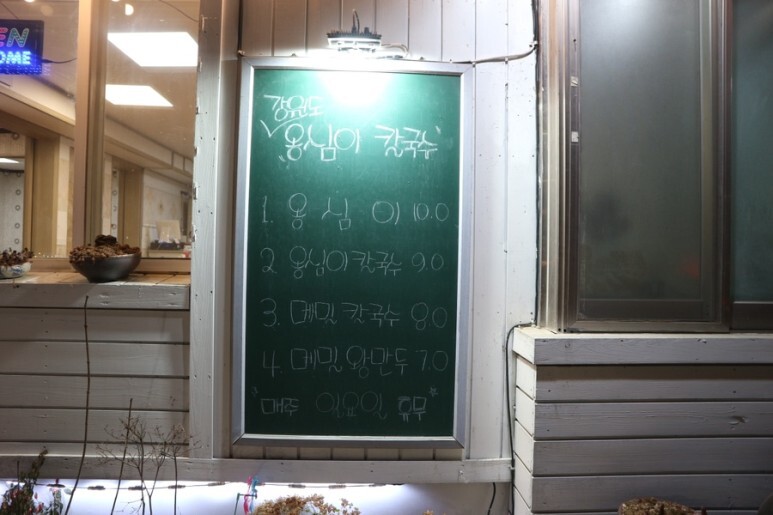 EN
OME
강원도
"옹심이 칼국수"
1. 옹심이 10.0
2. 옹심이칼국수 9.0
3. 메밀칼국수 8.0
4. 메밀왕만두 7.0
"매주 일요일 휴무"